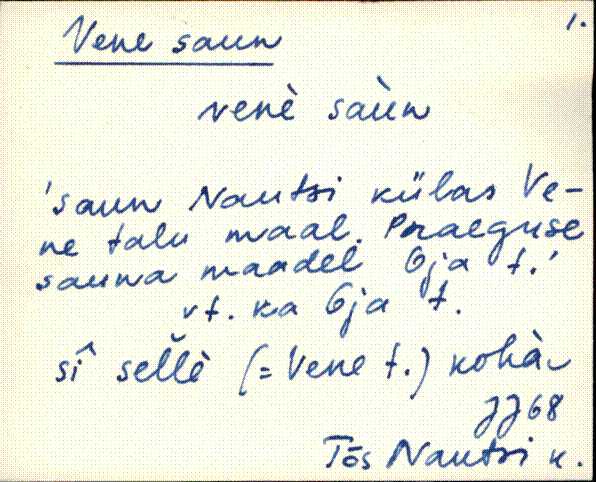 1.
Vene saun
venè saùn
'saun Nautsi külas Ve-
ne talu maal. Praeguse
sauna maadel Oja t.'
vt. ka Oja t.
sî selľè (= Vene t.) kohàl
JJ68
Tõs Nautsi k.